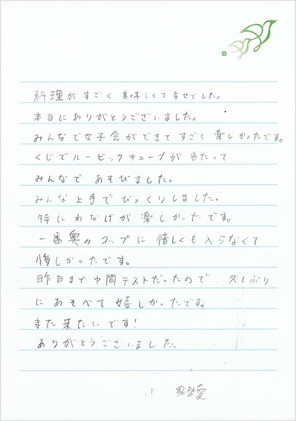 料理がすごく美味しくて幸せでした。
本当にありがとうございました。
みんなで女子会ができてすごく楽しかったです。
くじでルービックキューブが当たって
みんなであそびました。
みんな上手でびっくりしました。
特にわなげが楽しかったです。
一番奥のコップに惜しくも入らなくて
悔しかったです。
昨日まで中間テストだったので、久しぶり
にあそべて嬉しかったです。
また来たいです!
ありがとうございました。
愛